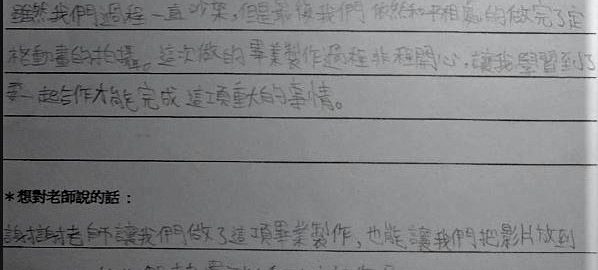 雖然我們過程一直吵架,但是最後我們依然和平相處的做完了定
格動畫的拍攝。這次做的畢業製作過程非程開心,讓我學習到了
要一起合作才能完成這項重大的事情。
*想對老師說的話:
謝謝老師讓我們做了這項畢業製作,也能讓我們把影片放到